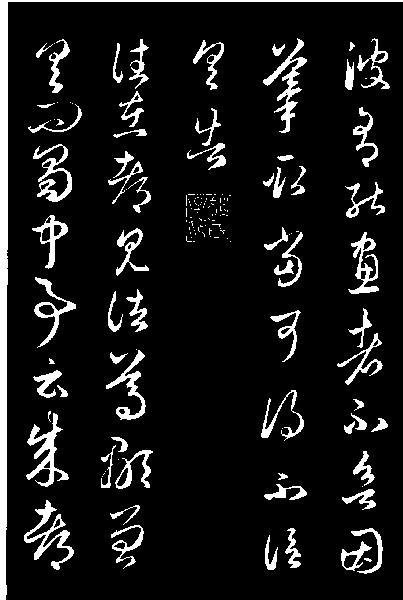 彼有能畫者不欲因
摹取當可得不信
具告
往在都見諸葛顒曾
具問蜀中事云成都